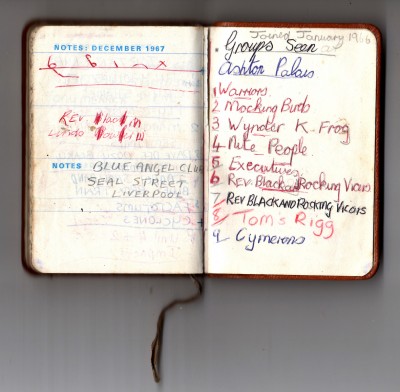 NOTES: DECEMBER 1967
Rev.
NOTES BLUE ANGEL CLUB
SEAL STREET
LIVERPOOL
Joined January 1966
Groups Seen
Ashton Palais
1 Warriors
2 Mocking Birds
3 Wynder K. Frog
4 Nite People
5 Executives
6 Rev. Black and Rocking Vicars
7 REV BLACK AND ROCKING VICARS
8/ Tom's Rigg
9 Cymerons